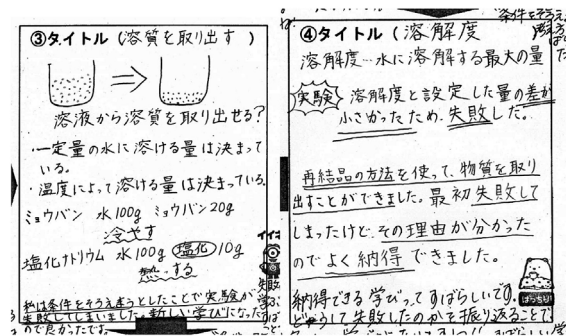 ③タイトル(溶質を取り出す)
溶液から溶質を取り出せる?
・一定量の水に溶ける量は決まって
いる。
・温度によって溶ける量は決まっている。
ミョウバン 水100g ミョウバン20g
冷やす
塩化ナトリウム 水100g 塩化10g
熱する
私は条件をそろえようとしたことで実験が
失敗してしまいました。新しい学びになった
ので良かったです。
④タイトル(溶解度
溶解度…水に溶解する最大の量
実験 溶解度と設定した量の差が
小さかったため、失敗した。
再結晶の方法を使って、物質を取り
出すことができました。最初失敗して
しまったけど、その理由が分かった
のでよく納得できました。
納得できる学びってすばらしいです。
どうして失敗したのかを振り返ることで、
ばっちり!
条件をそろえ